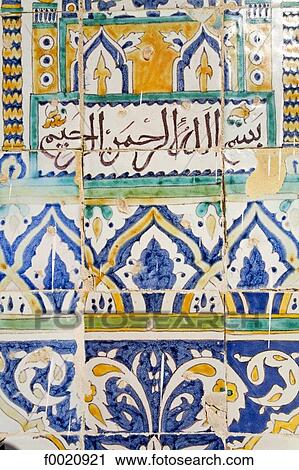 بسم الله الرحمن الرحيم
FOTOSEARCH
f0020921 www.fotosearch.com